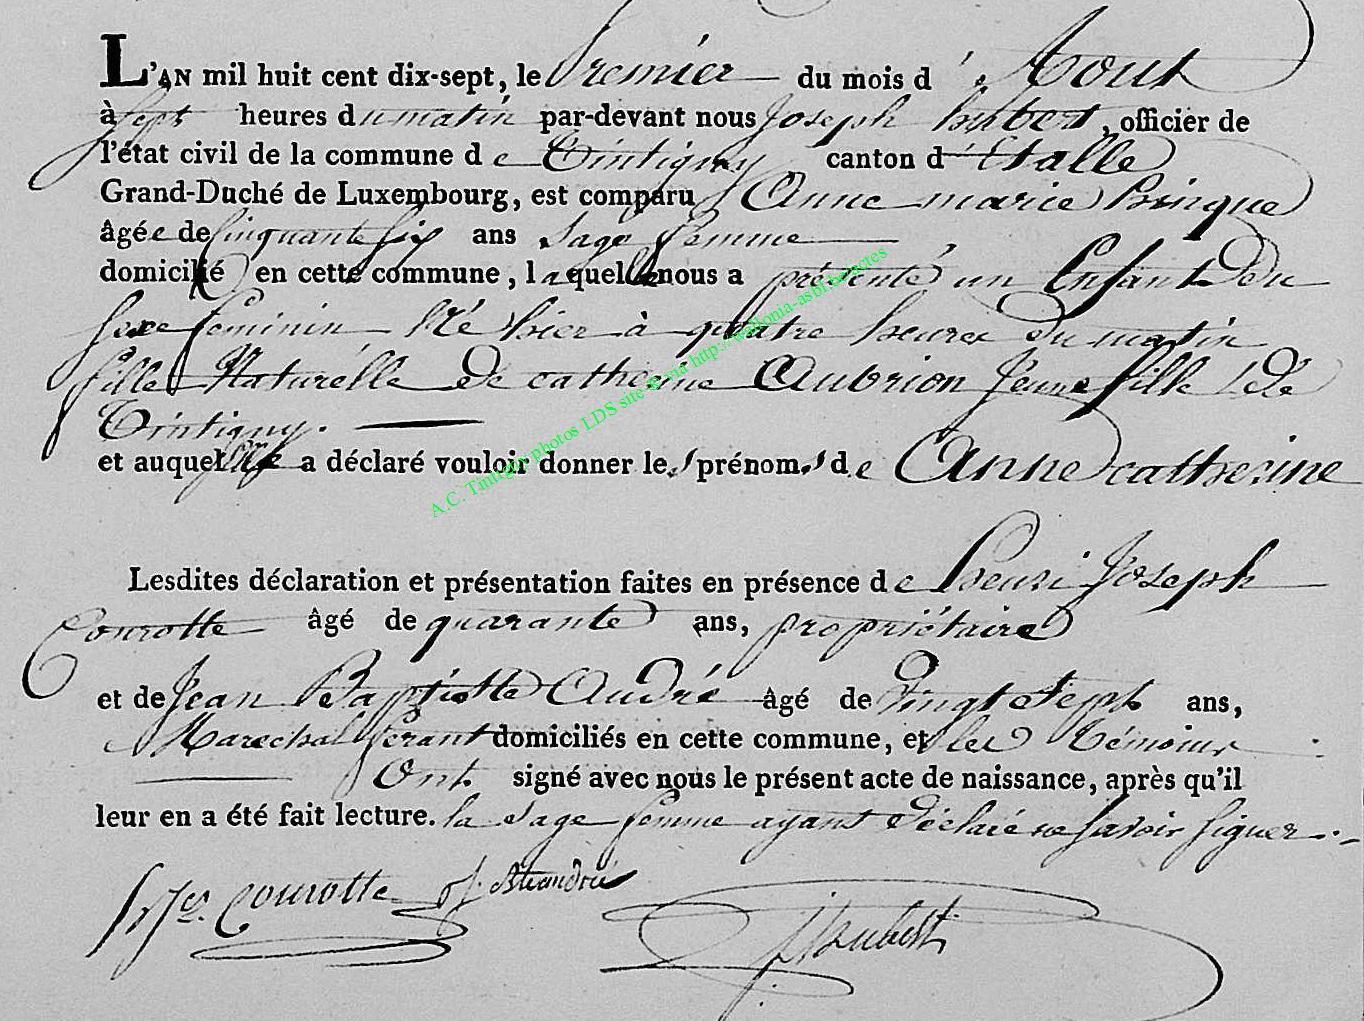 L'AN mil huit cent dix-sept, le Premier du mois d'Aout
à sept heures du matin par-devant nous Joseph hubert, officier de
l'état civil de la commune de Tintigny canton d'Etalle
Grand-Duché de Luxembourg, est comparu Anne marie
âgée de Cinquante six ans sage femme
domicilié en cette commune, laquelle nous a présenté un Enfant Du
sexe feminin Né hier à quatre heures du matin
fille Naturelle De catherine Aubrion Jeune fille de
Tintigny.
et auquel elle a déclaré vouloir donner les prénoms de Anne catherine
Lesdites déclaration et présentation faites en présence de henri Joseph
Courotte âgé de quarante ans, propriétaire
et de Jean Baptiste André âgé de Vingt sept ans,
Marechal ferant domiciliés en cette commune, et les témoins
Ont signé avec nous le présent acte de naissance, après qu'il
leur en a été fait lecture. la sage femme ayant déclaré ne savoir signer.
Courotte
J. hubert
A.C. Tintigny photos LDS site & via http://wallonia-asbl.be/actes